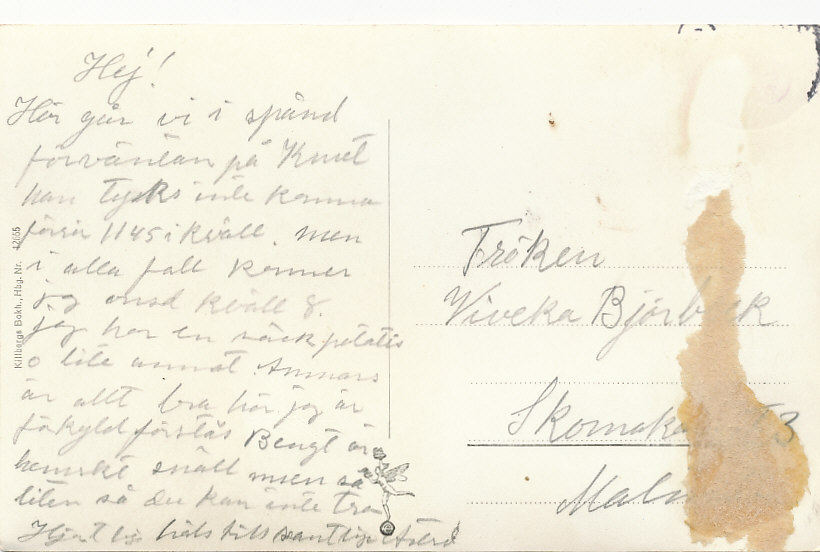 Hej!
Här går vi i spänd
förväntan på Knut
han tycks inte komma
förrän 1145 i kväll. men
i alla fall kommer
jag onsd kväll 8.
jag har en säck potatis
o lite annat. Annars
är allt bra här jag är
förkyld förstås Bengt är
hemskt snäll men så
liten så du kan inte tro
Hjärtlig häls till samtliga
Killbergs Bokh., Hbg. Nr. 42655
Fröken
Viveka Björbäck
Skomaka 3
Malm